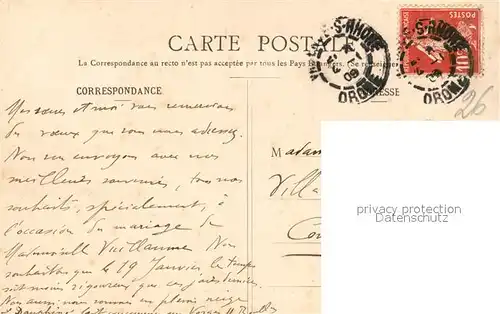 CARTE POSTALE
La Correspondance au recto n'est pas acceptée par tous les Pays Étrangers. (Se renseigner
CORRESPONDANCE
ADRESSE
POSTES
S-RHONE
09
DROME
S-RHONE
09
DROME
26
Mes sœurs et moi vous remercions
des vœux que vous nous adressez.
Nous vous envoyons avec nos
meilleurs souvenirs, tous nos
souhaits, spécialement, à
l'occasion du mariage de
Mademoiselle Vuillaume. Nous
souhaitons que le 19 Janvier le temps
soit moins rigoureux que ces jours derniers.
Nous aussi nous sommes en pleine neige
Dauphiné
Madam
Villa
privacy protection
Datenschutz